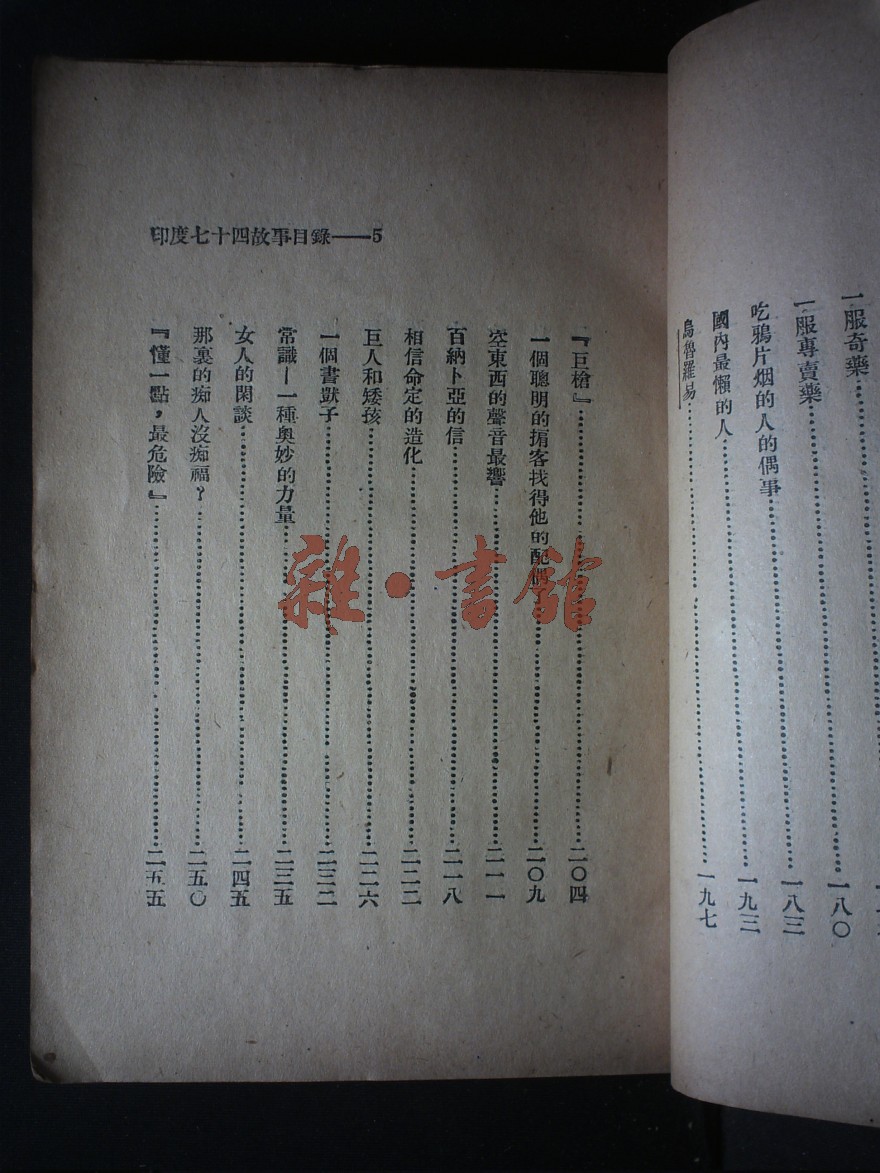 一服奇藥……一八〇
一服專賣藥……一八三
吃鴉片烟的人的偶事……一九三
國內最懶的人
烏魯羅易……一九七
印度七十四故事目錄——5
『巨槍』……二〇四
一個聰明的掮客找得他的配偶……二〇九
空東西的聲音最響……二一一
百納卜亞的信……二一八
相信命定的造化……二二二
巨人和矮孩……二二六
一個書獃子……二三二
常識—一種奧妙的力量……二三五
女人的閑談……二四五
那裏的痴人沒痴福？……二五〇
『懂一點，最危險』……二五五
雜·書館